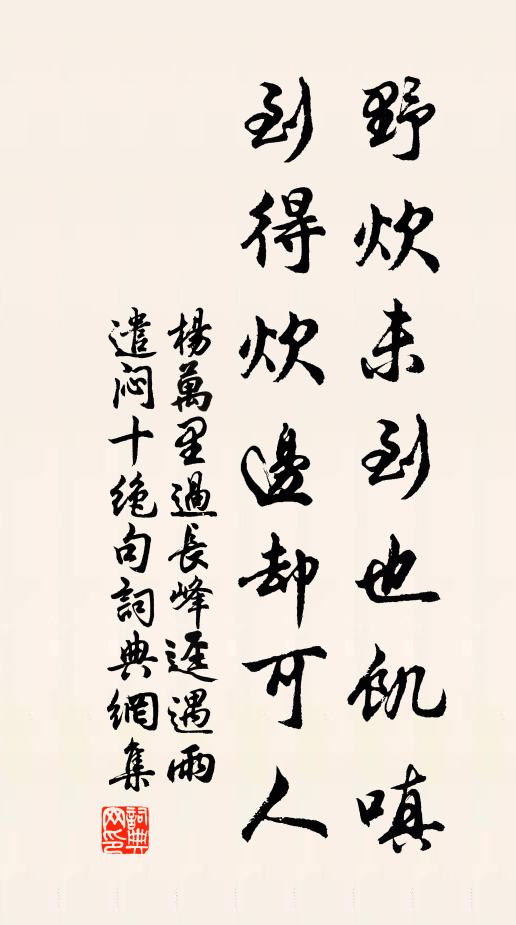 野炊未到也飢嗔
到得炊邊却可人
楊萬里過長峰逕遇雨
遣悶十絶句詞典網集
詞典網印